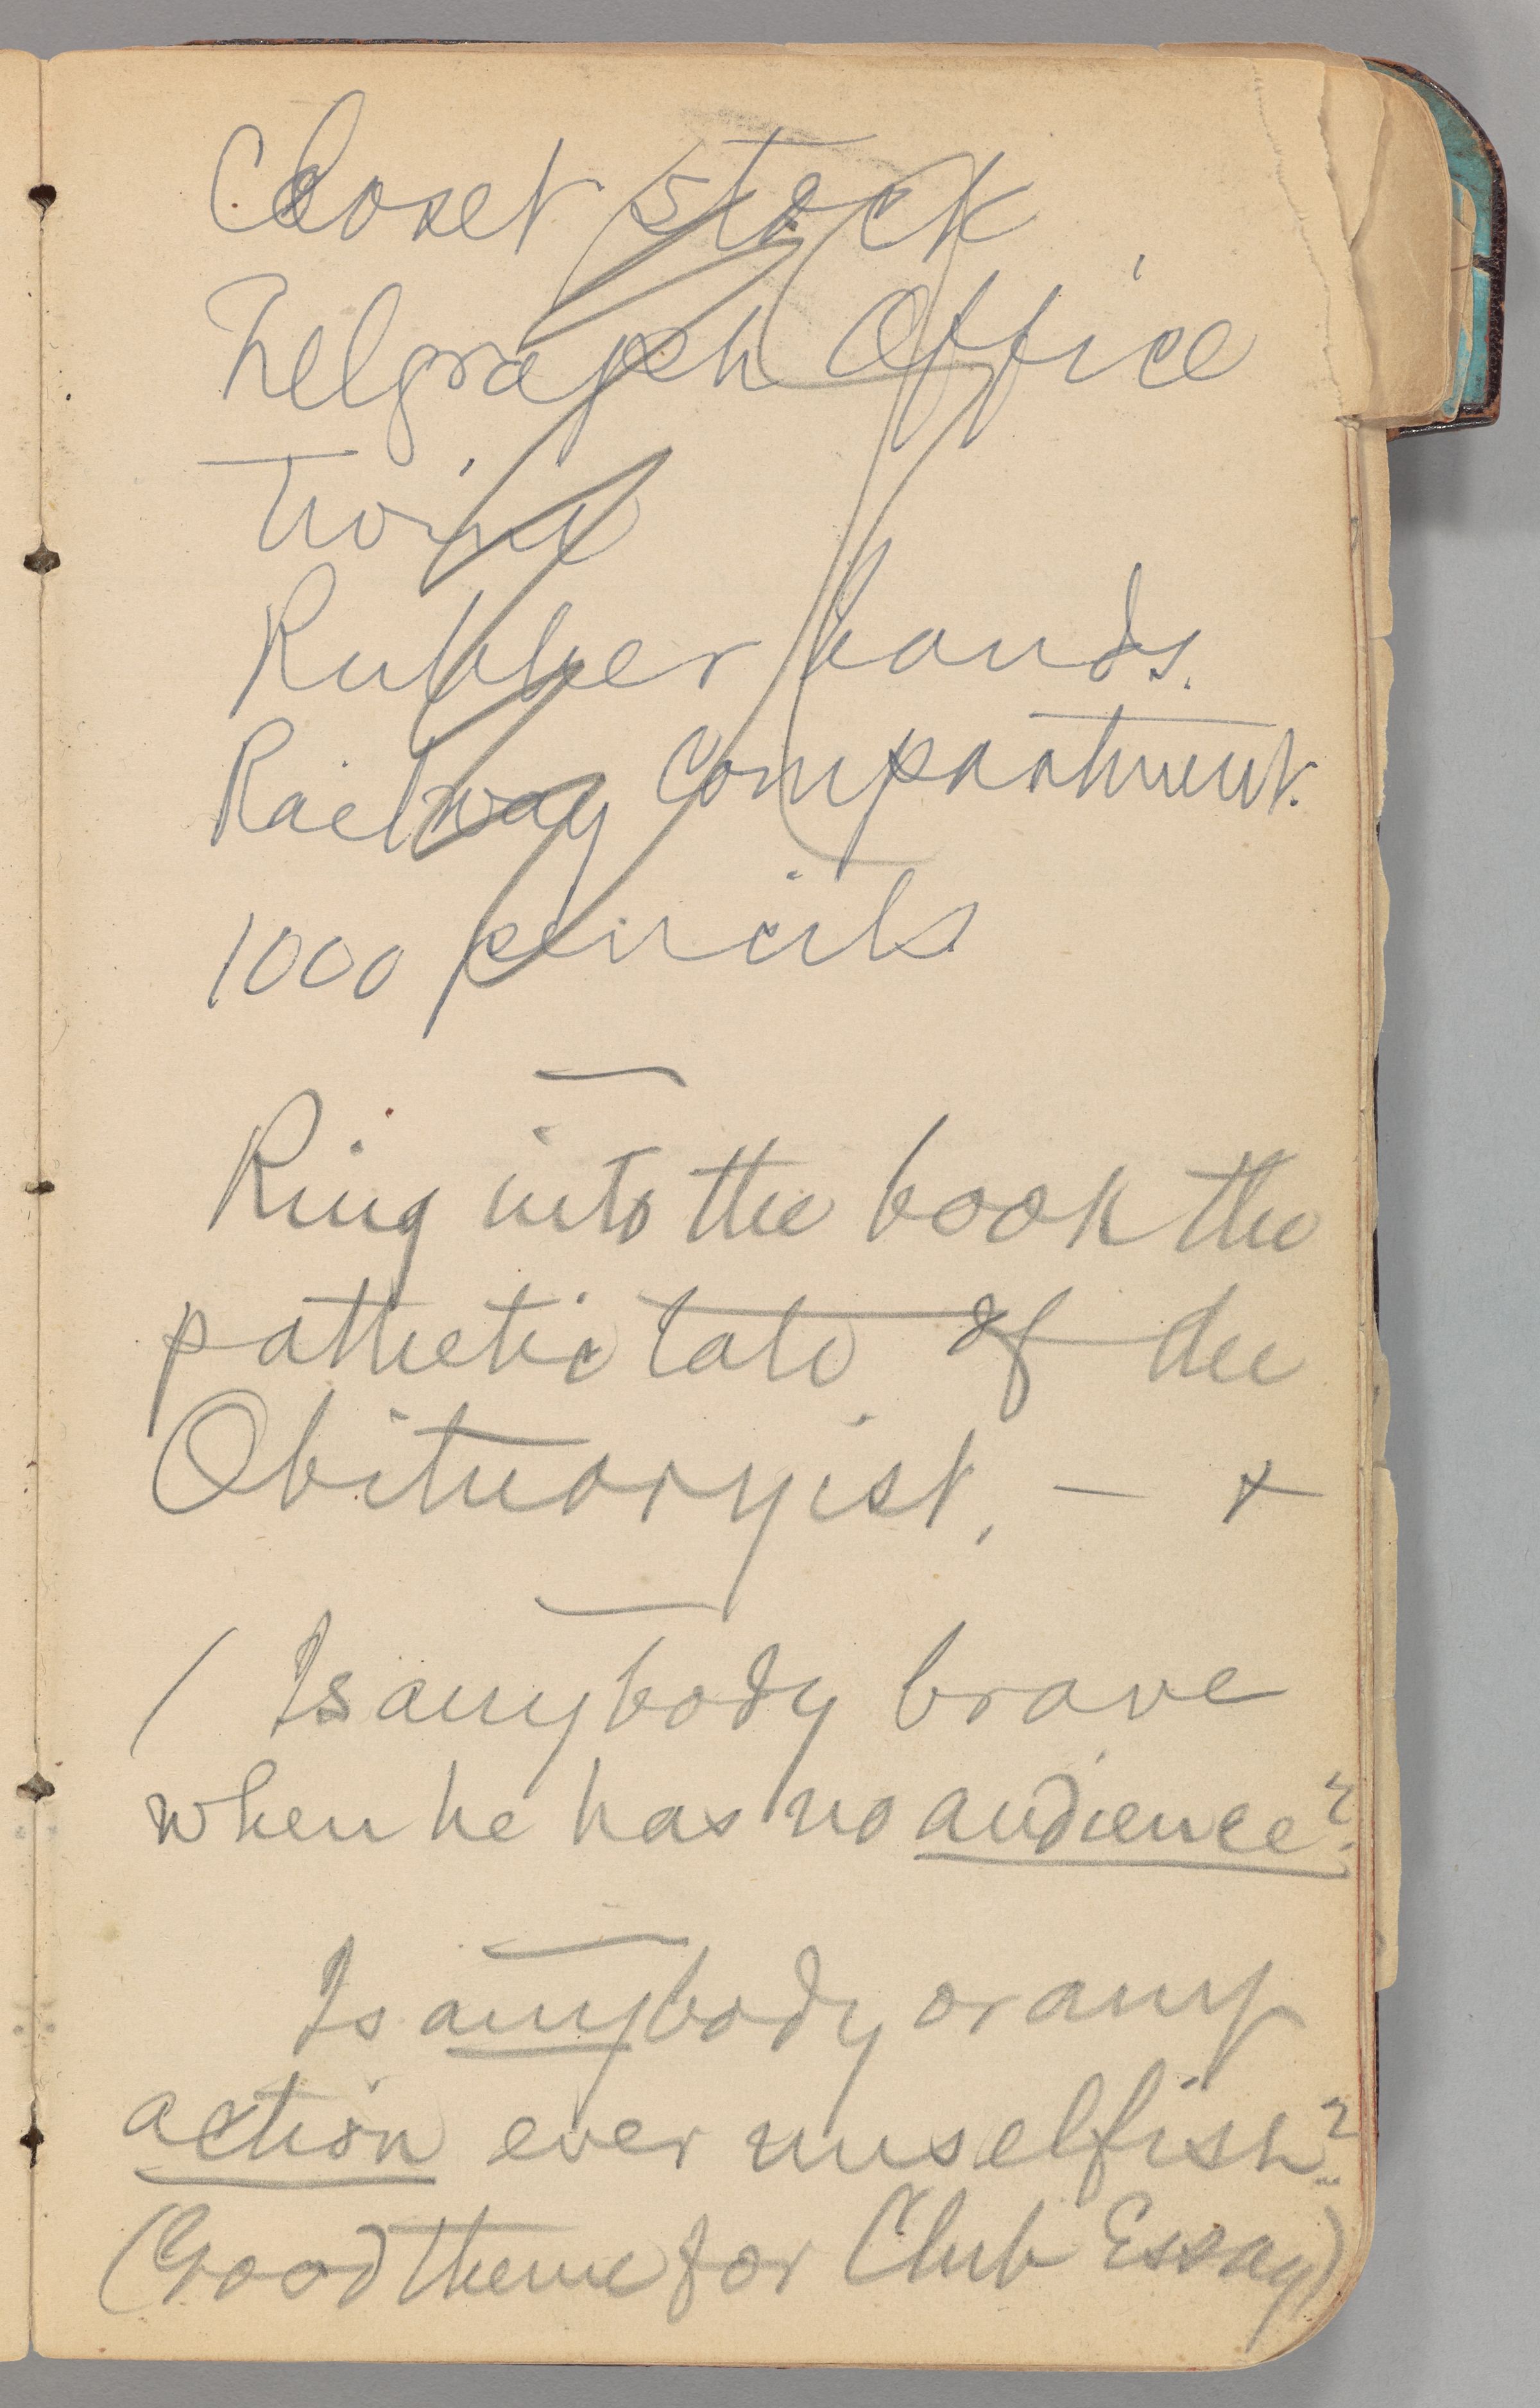 Closet stock
Telgraph Office
Twine
Rubber bands.
Railway Compartment.
1000 pencils
Ring into the book the
pathetic tale of the
Obituaryist, — +
/ Is anybody brave
when he has no audience?
Is anybody or any
action ever unselfish?
(Good theme for Club Essay)